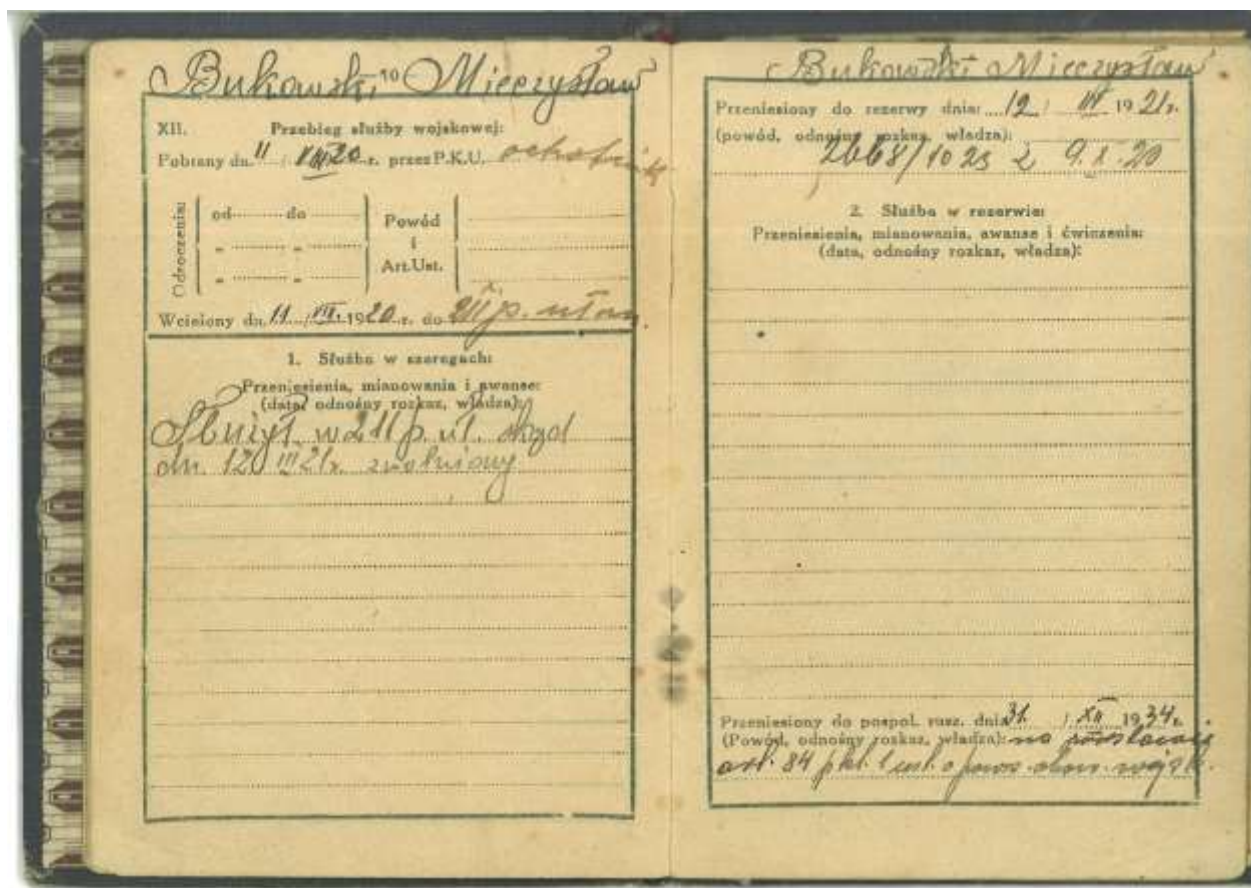 Bukowski Mieczysław
10
XII. Przebieg służby wojskowej:
Pobrany dn. 11 / VIII 20 r. przez P.K.U. ochotnik
Odroczenia:
od ........ do ........ Powód
„ ........ „ ........ i
„ ........ „ ........ Art.Ust.
Wcielony dn. 11 / VIII. 1920 r. do p. ułan.
1. Służba w szeregach:
Przeniesienia, mianowania i awanse:
(data, odnośny rozkaz, władza):
Służył w 211 p. uł.
dn. 12 III 21 r. zwolniony
Bukowski Mieczysław
Przeniesiony do rezerwy dnia: 12 / III 1921 r.
(powód, odnośny rozkaz, władza):
2668/10 25 z 9.X.20
2. Służba w rezerwie:
Przeniesienia, mianowania, awanse i ćwiczenia:
(data, odnośny rozkaz, władza):
Przeniesiony do pospol. rusz. dnia 31. / XII 1934 r.
(Powód, odnośny rozkaz, władza): na podstawie
art. 84 pkt. 1 ust. o pows. obow. wojsk.